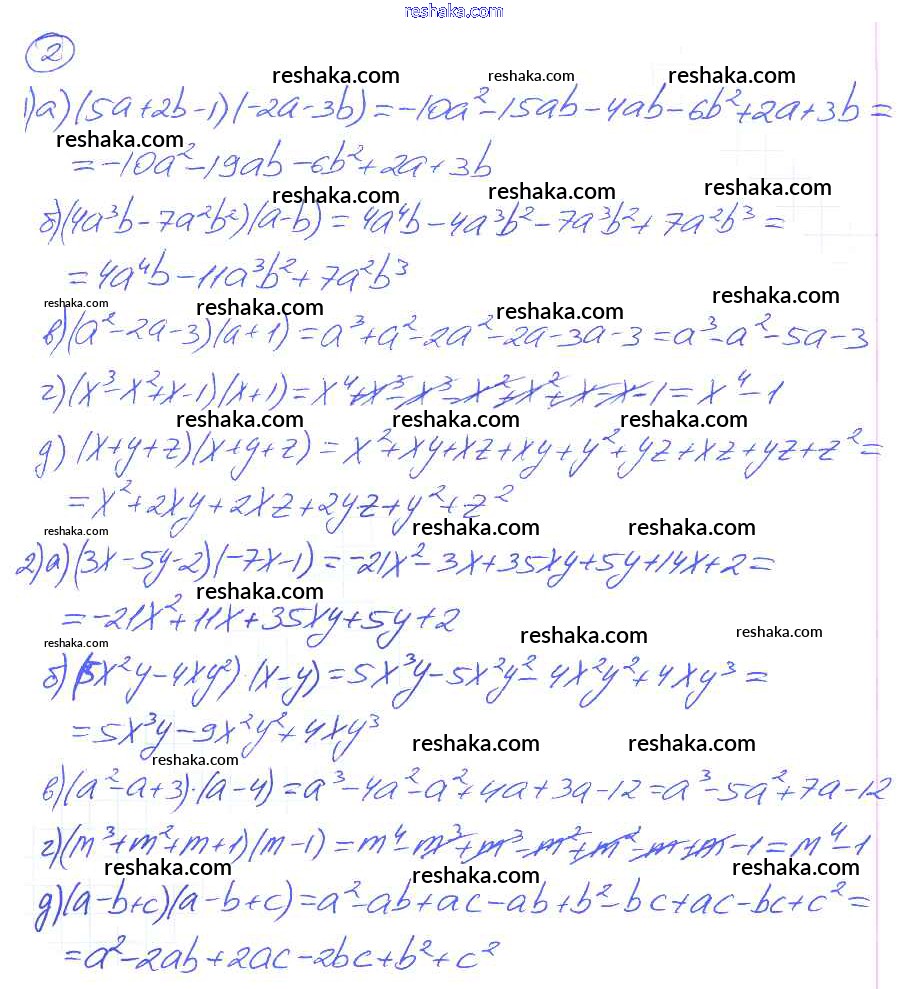 reshaka.com
2
reshaka.com reshaka.com reshaka.com
1)а) (5a+2b-1)(-2a-3b) = -10a²-15ab-4ab-6b²+2a+3b =
reshaka.com
= -10a²-19ab-6b²+2a+3b
reshaka.com reshaka.com reshaka.com
б)(4a³b-7a²b²)(a-b) = 4a⁴b-4a³b²-7a³b²+7a²b³ =
= 4a⁴b-11a³b²+7a²b³
reshaka.com reshaka.com reshaka.com reshaka.com
в)(a²-2a-3)(a+1) = a³+a²-2a²-2a-3a-3 = a³-a²-5a-3
г)(x³-x²+x-1)(x+1) = x⁴+x³-x³-x²+x²+x-x-1 = x⁴-1
reshaka.com reshaka.com reshaka.com
д) (x+y+z)(x+y+z) = x²+xy+xz+xy+y²+yz+xz+yz+z² =
= x²+2xy+2xz+2yz+y²+z²
reshaka.com reshaka.com reshaka.com
2)а)(3x-5y-2)(-7x-1) = -21x²-3x+35xy+5y+14x+2 =
reshaka.com
= -21x²+11x+35xy+5y+2
reshaka.com reshaka.com reshaka.com
б)(5x²y-4xy²)·(x-y) = 5x³y-5x²y²-4x²y²+4xy³ =
= 5x³y-9x²y²+4xy³
reshaka.com reshaka.com reshaka.com
в)(a²-a+3)·(a-4) = a³-4a²-a²+4a+3a-12 = a³-5a²+7a-12
г)(m³+m²+m+1)(m-1) = m⁴-m³+m³-m²+m²-m+m-1 = m⁴-1
reshaka.com reshaka.com reshaka.com
д)(a-b+c)(a-b+c) = a²-ab+ac-ab+b²-bc+ac-bc+c² =
= a²-2ab+2ac-2bc+b²+c²